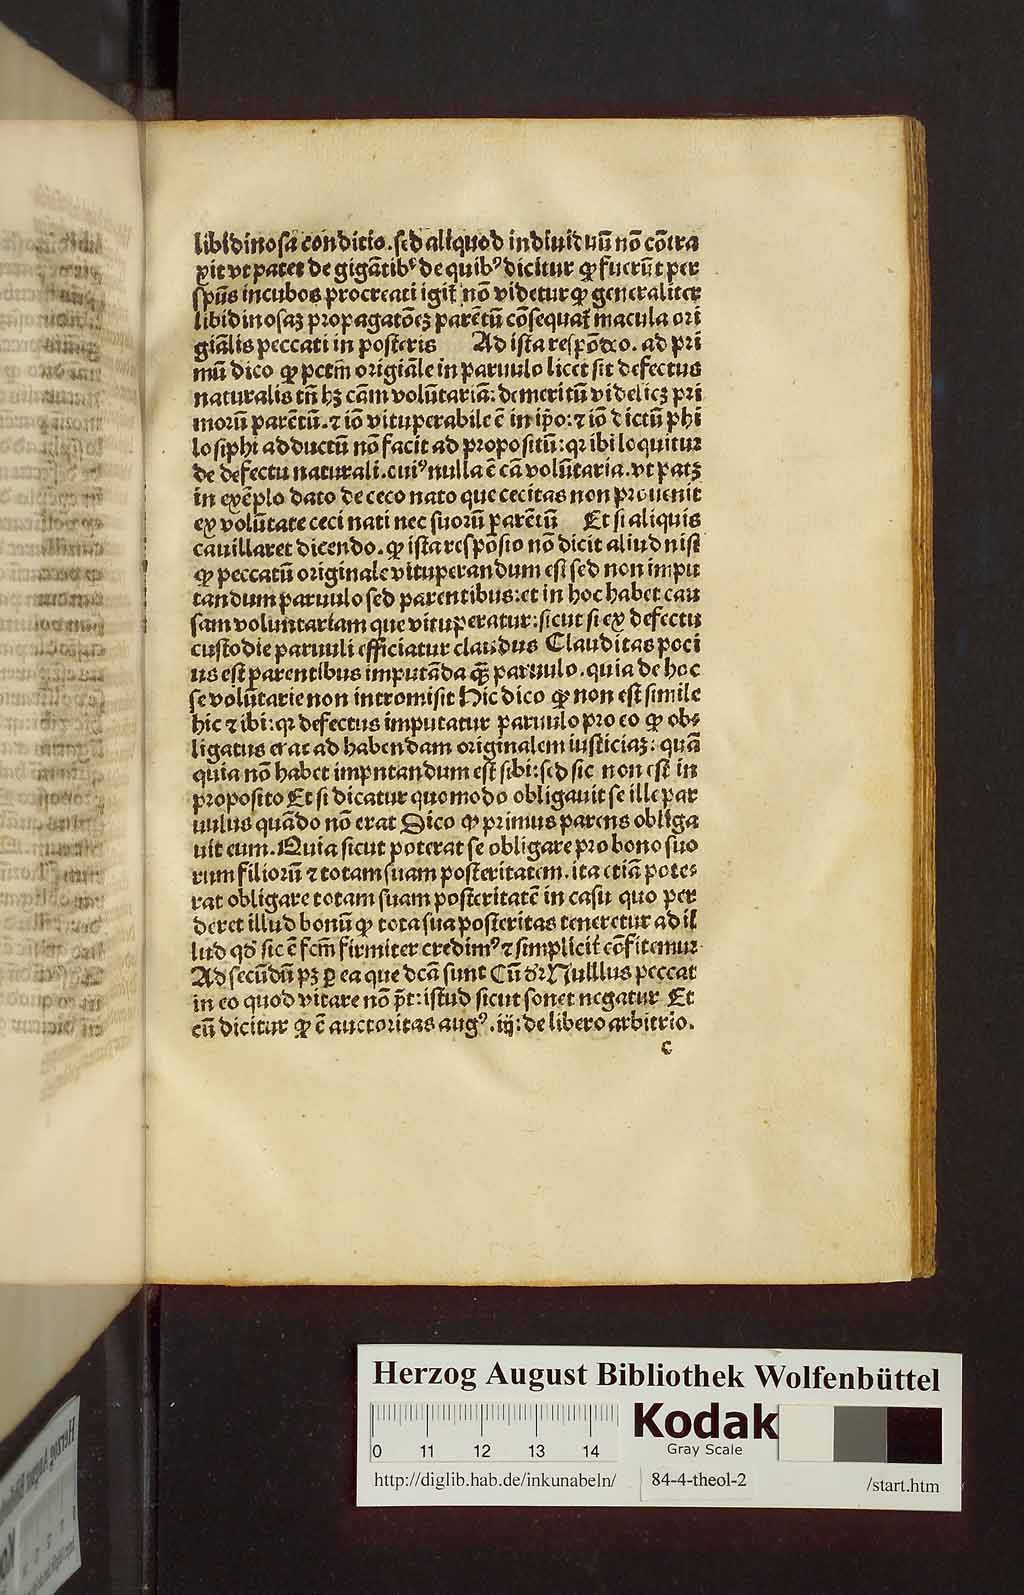 libidinosa conditio. sed aliquod indiuiduū nō cōtra
xit vt patet de gigātibꝰ de quibꝰ dicitur ꝙ fuerūt per
spūs incubos procreati igit̄ nō videtur ꝙ generaliter
libidinosaꝫ propagatōeꝫ parētū cōsequat̄ macula ori
giālis peccati in posteris Ad ista respōdeo. ad pri
mū dico ꝙ pctm̄ origiāle in paruulo licet sit defectus
naturalis tn̄ hꝫ cām volūtariā: demeritū videlicꝫ pri
morū parētū. ⁊ iō vituperabile ē in ip̄o: ⁊ iō dictū phi
losiphi adductū nō facit ad propositū: qꝛ ibi loquitur
de defectu naturali. cuiꝰ nulla ē cā volūtaria. vt patꝫ
in exēplo dato de ceco nato que cecitas non prouenit
ex volūtate ceci nati nec suorū parētū Et si aliquis
cauillaret dicendo. ꝙ ista respōsio nō dicit aliud nisi
ꝙ peccatū originale vituperandum est sed non impu
tandum paruulo sed parentibus: et in hoc habet cau
sam voluntariam que vituperatur: sicut si ex defectu
custodie paruuli efficiatur claudus Clauditas poci
us est parentibus imputāda qȝ̄ paruulo. quia de hoc
se volūtarie non intromisit Hic dico ꝙ non est simile
hic ⁊ ibi: qꝛ defectus imputatur paruulo pro eo ꝙ ob⸗
ligatus erat ad habendam originalem iusticiaꝫ: quā
quia nō habet impntandum est sibi: sed sic non est in
proposito Et si dicatur quomodo obligauit se ille par
uulus quādo nō erat Dico ꝙ primus parens obliga
uit eum. Quia sicut poterat se obligare pro bono suo
rum filiorū ⁊ totam suam posteritatem. ita etiā pote⸗
rat obligare totam suam posteritatē in casu quo per
deret illud bonū ꝙ tota sua posteritas teneretur ad il
lud qd̄ sic ē fcm̄ firmiter credimꝰ ⁊ simplicit̄ cōfitemur
Ad secūdū pꝫ ꝑ ea que dcā sunt Cū dr̄ Nulllus peccat
in eo quod vitare nō pt̄: istud sicut sonet negatur Et
cū dicitur ꝙ ē auctoritas augꝰ. iij: de libero arbitrio.
c
Herzog August Bibliothek Wolfenbüttel
0 11 12 13 14
Kodak
Gray Scale
http://diglib.hab.de/inkunabeln/ 84-4-theol-2 /start.htm